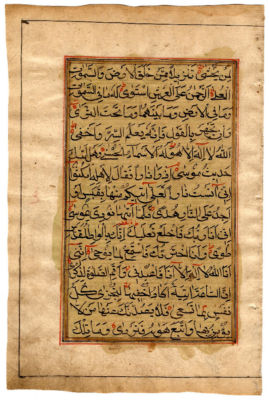 لمن يخشى تنزيلا ممن خلق الارض والسموات
العلى الرحمن على العرش استوى له ما في السموات
وما في الارض وما بينهما وما تحت الثرى
وان تجهر بالقول فانه يعلم السر واخفى
الله لا اله الا هو له الاسماء الحسنى وهل اتيك
حديث موسى اذ را نارا فقال لاهله امكثوا
اني انست نارا لعلي اتيكم منها بقبس او
اجد على النار هدى فلما اتيها نودي يموسى
اني انا ربك فاخلع نعليك انك بالواد المقدس
طوى وانا اخترتك فاستمع لما يوحى انني
انا الله لا اله الا انا فاعبدني واقم الصلوة لذكري
ان الساعة اتية اكاد اخفيها لتجزى كل
نفس بما تسعى فلا يصدنك عنها من لا
يؤمن بها واتبع هويه فتردى وما تلك